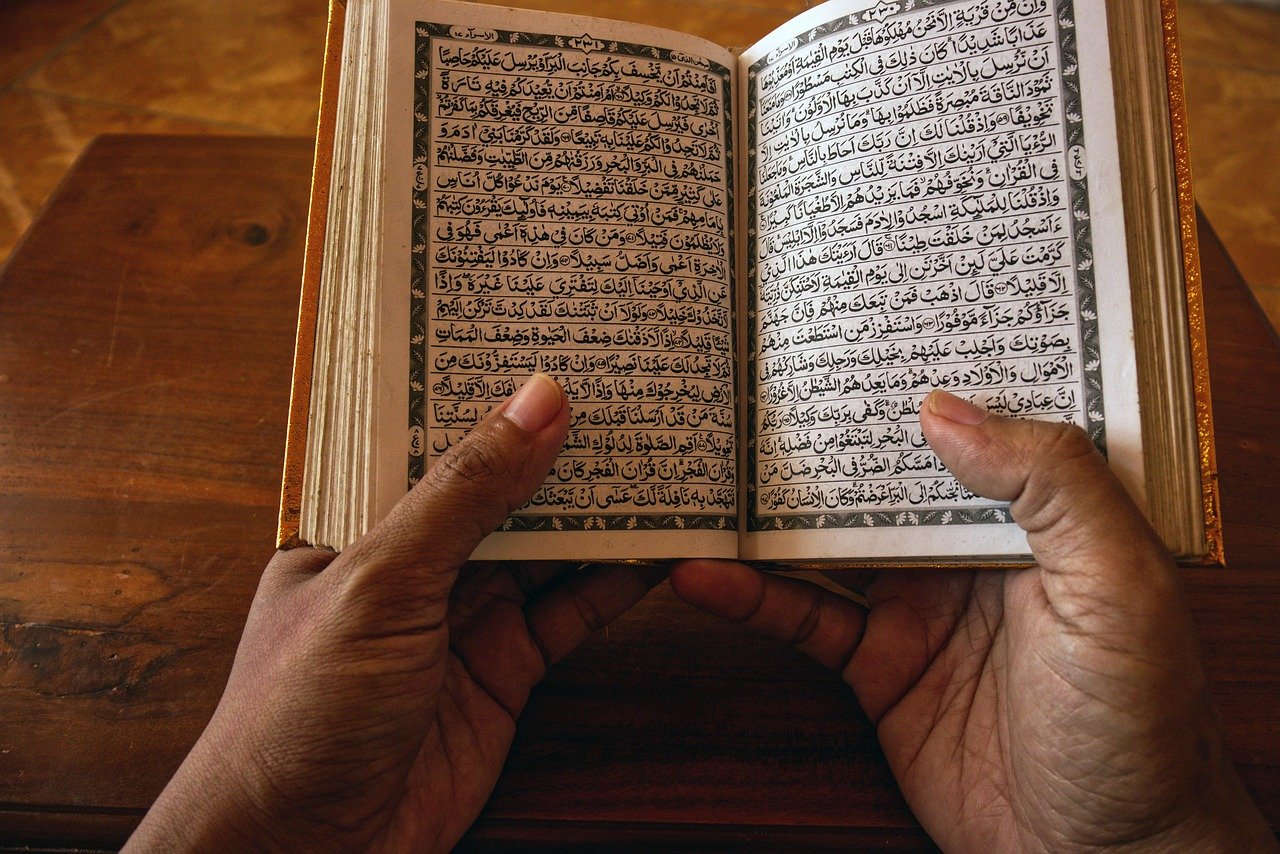 ٢٣٠
وَاِنْ مِّنْ قَرْيَةٍ اِلَّا نَحْنُ مُهْلِكُوْهَا قَبْلَ يَوْمِ الْقِيٰمَةِ اَوْ مُعَذِّبُوْهَا
عَذَابًا شَدِيْدًا كَانَ ذٰلِكَ فِي الْكِتٰبِ مَسْطُوْرًا ۝٥٨ وَمَا مَنَعَنَا
اَنْ نُّرْسِلَ بِالْاٰيٰتِ اِلَّا اَنْ كَذَّبَ بِهَا الْاَوَّلُوْنَ وَاٰتَيْنَا
ثَمُوْدَ النَّاقَةَ مُبْصِرَةً فَظَلَمُوْا بِهَا وَمَا نُرْسِلُ بِالْاٰيٰتِ اِلَّا
تَخْوِيْفًا ۝٥٩ وَاِذْ قُلْنَا لَكَ اِنَّ رَبَّكَ اَحَاطَ بِالنَّاسِ وَمَا جَعَلْنَا
الرُّءْيَا الَّتِيْ اَرَيْنٰكَ اِلَّا فِتْنَةً لِّلنَّاسِ وَالشَّجَرَةَ الْمَلْعُوْنَةَ
فِي الْقُرْاٰنِ وَنُخَوِّفُهُمْ فَمَا يَزِيْدُهُمْ اِلَّا طُغْيَانًا كَبِيْرًا ۝٦٠
وَاِذْ قُلْنَا لِلْمَلٰٓئِكَةِ اسْجُدُوْا لِاٰدَمَ فَسَجَدُوْا اِلَّا اِبْلِيْسَ قَالَ
ءَاَسْجُدُ لِمَنْ خَلَقْتَ طِيْنًا ۝٦١ قَالَ اَرَءَيْتَكَ هٰذَا الَّذِيْ
كَرَّمْتَ عَلَيَّ لَئِنْ اَخَّرْتَنِ اِلٰى يَوْمِ الْقِيٰمَةِ لَاَحْتَنِكَنَّ ذُرِّيَّتَهٗ
اِلَّا قَلِيْلًا ۝٦٢ قَالَ اذْهَبْ فَمَنْ تَبِعَكَ مِنْهُمْ فَاِنَّ جَهَنَّمَ
جَزَآؤُكُمْ جَزَآءً مَّوْفُوْرًا ۝٦٣ وَاسْتَفْزِزْ مَنِ اسْتَطَعْتَ مِنْهُمْ
بِصَوْتِكَ وَاَجْلِبْ عَلَيْهِمْ بِخَيْلِكَ وَرَجِلِكَ وَشَارِكْهُمْ فِي
الْاَمْوَالِ وَالْاَوْلَادِ وَعِدْهُمْ وَمَا يَعِدُهُمُ الشَّيْطٰنُ اِلَّا غُرُوْرًا ۝٦٤
اِنَّ عِبَادِيْ لَيْسَ سُلْطٰنٌ وَكَفٰى بِرَبِّكَ وَكِيْلًا ۝٦٥ رَبُّكُمُ
فِي الْبَحْرِ لِتَبْتَغُوْا مِنْ فَضْلِهٖ اِنَّهٗ
مَسَّكُمُ الضُّرُّ فِي الْبَحْرِ ضَلَّ مَنْ
نَجّٰىكُمْ اِلَى الْبَرِّ اَعْرَضْتُمْ وَكَانَ الْاِنْسَانُ كَفُوْرًا ۝٦٧
٢٣١
الاسراء ١٧
اَفَاَمِنْتُمْ اَنْ يَّخْسِفَ بِكُمْ جَانِبَ الْبَرِّ اَوْ يُرْسِلَ عَلَيْكُمْ حَاصِبًا
ثُمَّ لَا تَجِدُوْا لَكُمْ وَكِيْلًا ۝٦٨ اَمْ اَمِنْتُمْ اَنْ يُّعِيْدَكُمْ فِيْهِ تَارَةً
اُخْرٰى فَيُرْسِلَ عَلَيْكُمْ قَاصِفًا مِّنَ الرِّيْحِ فَيُغْرِقَكُمْ بِمَا كَفَرْتُمْ
ثُمَّ لَا تَجِدُوْا لَكُمْ عَلَيْنَا بِهٖ تَبِيْعًا ۝٦٩ وَلَقَدْ كَرَّمْنَا بَنِيْ اٰدَمَ وَ
حَمَلْنٰهُمْ فِي الْبَرِّ وَالْبَحْرِ وَرَزَقْنٰهُمْ مِّنَ الطَّيِّبٰتِ وَفَضَّلْنٰهُمْ
عَلٰى كَثِيْرٍ مِّمَّنْ خَلَقْنَا تَفْضِيْلًا ۝٧٠ يَوْمَ نَدْعُوْا كُلَّ اُنَاسٍ
بِاِمَامِهِمْ فَمَنْ اُوْتِيَ كِتٰبَهٗ بِيَمِيْنِهٖ فَاُولٰٓئِكَ يَقْرَءُوْنَ كِتٰبَهُمْ
وَلَا يُظْلَمُوْنَ فَتِيْلًا ۝٧١ وَمَنْ كَانَ فِيْ هٰذِهٖ اَعْمٰى فَهُوَ فِي
الْاٰخِرَةِ اَعْمٰى وَاَضَلُّ سَبِيْلًا ۝٧٢ وَاِنْ كَادُوْا لَيَفْتِنُوْنَكَ
عَنِ الَّذِيْ اَوْحَيْنَا اِلَيْكَ لِتَفْتَرِيَ عَلَيْنَا غَيْرَهٗ وَاِذًا
لَّاتَّخَذُوْكَ خَلِيْلًا ۝٧٣ وَلَوْلَا اَنْ ثَبَّتْنٰكَ لَقَدْ كِدْتَّ تَرْكَنُ اِلَيْهِمْ
شَيْئًا قَلِيْلًا ۝٧٤ اِذًا لَّاَذَقْنٰكَ ضِعْفَ الْحَيٰوةِ وَضِعْفَ الْمَمَاتِ
ثُمَّ لَا تَجِدُ لَكَ عَلَيْنَا نَصِيْرًا ۝٧٥ وَاِنْ كَادُوْا لَيَسْتَفِزُّوْنَكَ مِنَ
الْاَرْضِ لِيُخْرِجُوْكَ مِنْهَا وَاِذًا لَّا خِلٰفَكَ اِلَّا قَلِيْلًا ۝٧٦
سُنَّةَ مَنْ قَدْ اَرْسَلْنَا قَبْلَكَ مِنْ لِسُنَّتِنَا
تَحْوِيْلًا ۝٧٧ اَقِمِ الصَّلٰوةَ لِدُلُوْكِ الشَّمْسِ
وَقُرْاٰنَ الْفَجْرِ اِنَّ قُرْاٰنَ الْفَجْرِ كَانَ
فَتَهَجَّدْ بِهٖ نَافِلَةً لَّكَ عَسٰى اَنْ يَّبْعَثَكَ